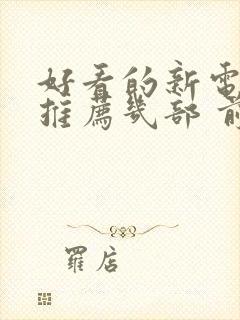 好看的新電
推薦几部 前
羅店